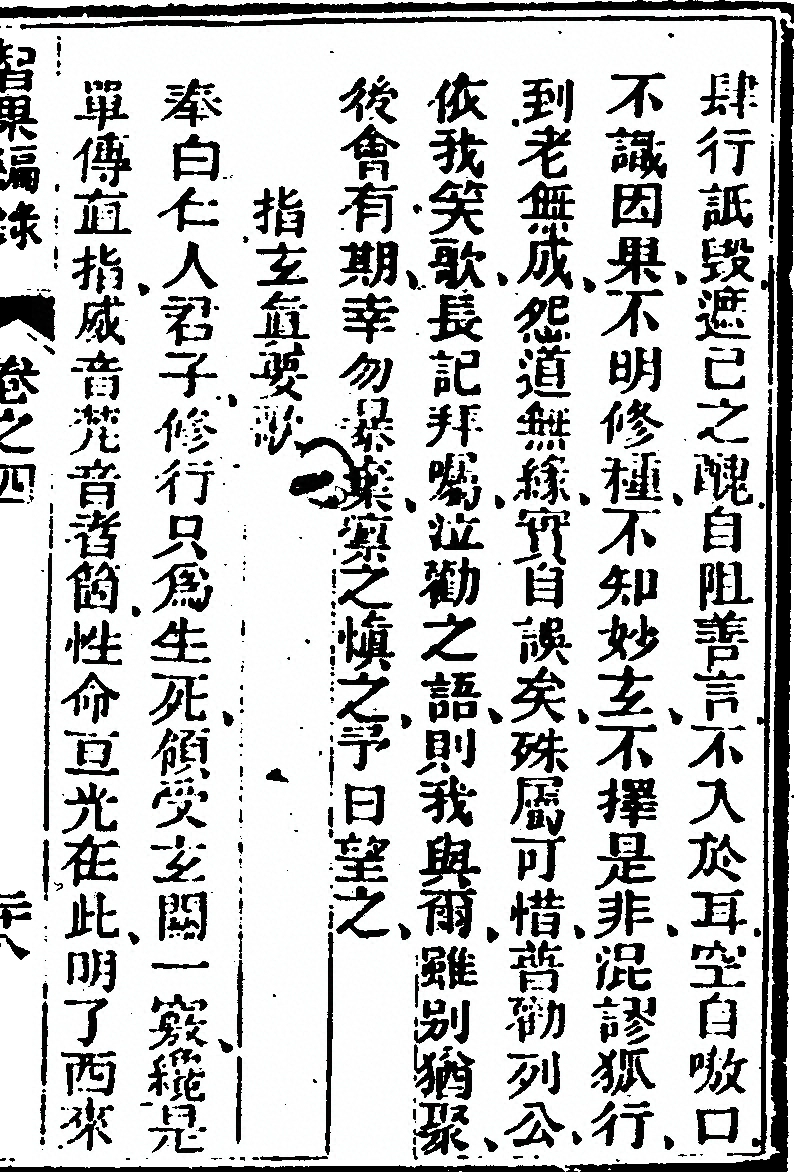 肆行詆毀遮己之醜自阻善言不入於耳空自嗷口
不識因果不明修種不知妙玄不擇是非混謬狐行
到老無成怨道無緣實自誤矣殊屬可惜普勸列公
依我笑歌長記拜囑泣勸之語則我與爾雖別猶聚
後會有期幸勿暴棄凛之慎之予日望之
指玄直要歌
奉白仁人君子修行只為生死領受玄關一竅纔是
單傳直指威音梵音者箇性命亘光在此明了西來
智果編錄 卷之四 二十八